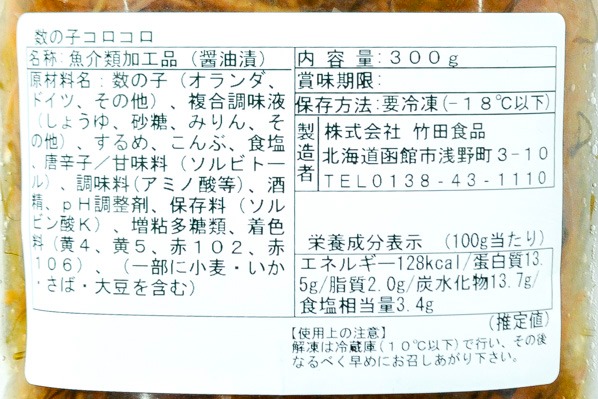 数の子コロコロ
名称:魚介類加工品（醤油漬）
原材料名：数の子（オランダ、
ドイツ、その他）、複合調味液
（しょうゆ、砂糖、みりん、そ
の他）、するめ、こんぶ、食塩
、唐辛子／甘味料（ソルビトー
ル）、調味料(アミノ酸等)、酒
精、ｐＨ調整剤、保存料（ソル
ビン酸Ｋ）、増粘多糖類、着色
料（黄４、黄５、赤１０２、赤
１０６）、（一部に小麦・いか
・さば・大豆を含む）
内 容 量：３００ｇ
賞味期限:
保存方法:要冷凍(－１８℃以下)
製造者
株式会社 竹田食品
北海道函館市浅野町３-１０
ＴＥＬ０１３８-４３-１１１０
栄養成分表示　(100g当たり)
エネルギー128kcal/蛋白質13.
5g/脂質2.0g/炭水化物13.7g/
食塩相当量3.4g
(推定値)
【使用上の注意】
解凍は冷蔵庫(１０℃以下)で行い、その後
なるべく早めにお召しあがり下さい。